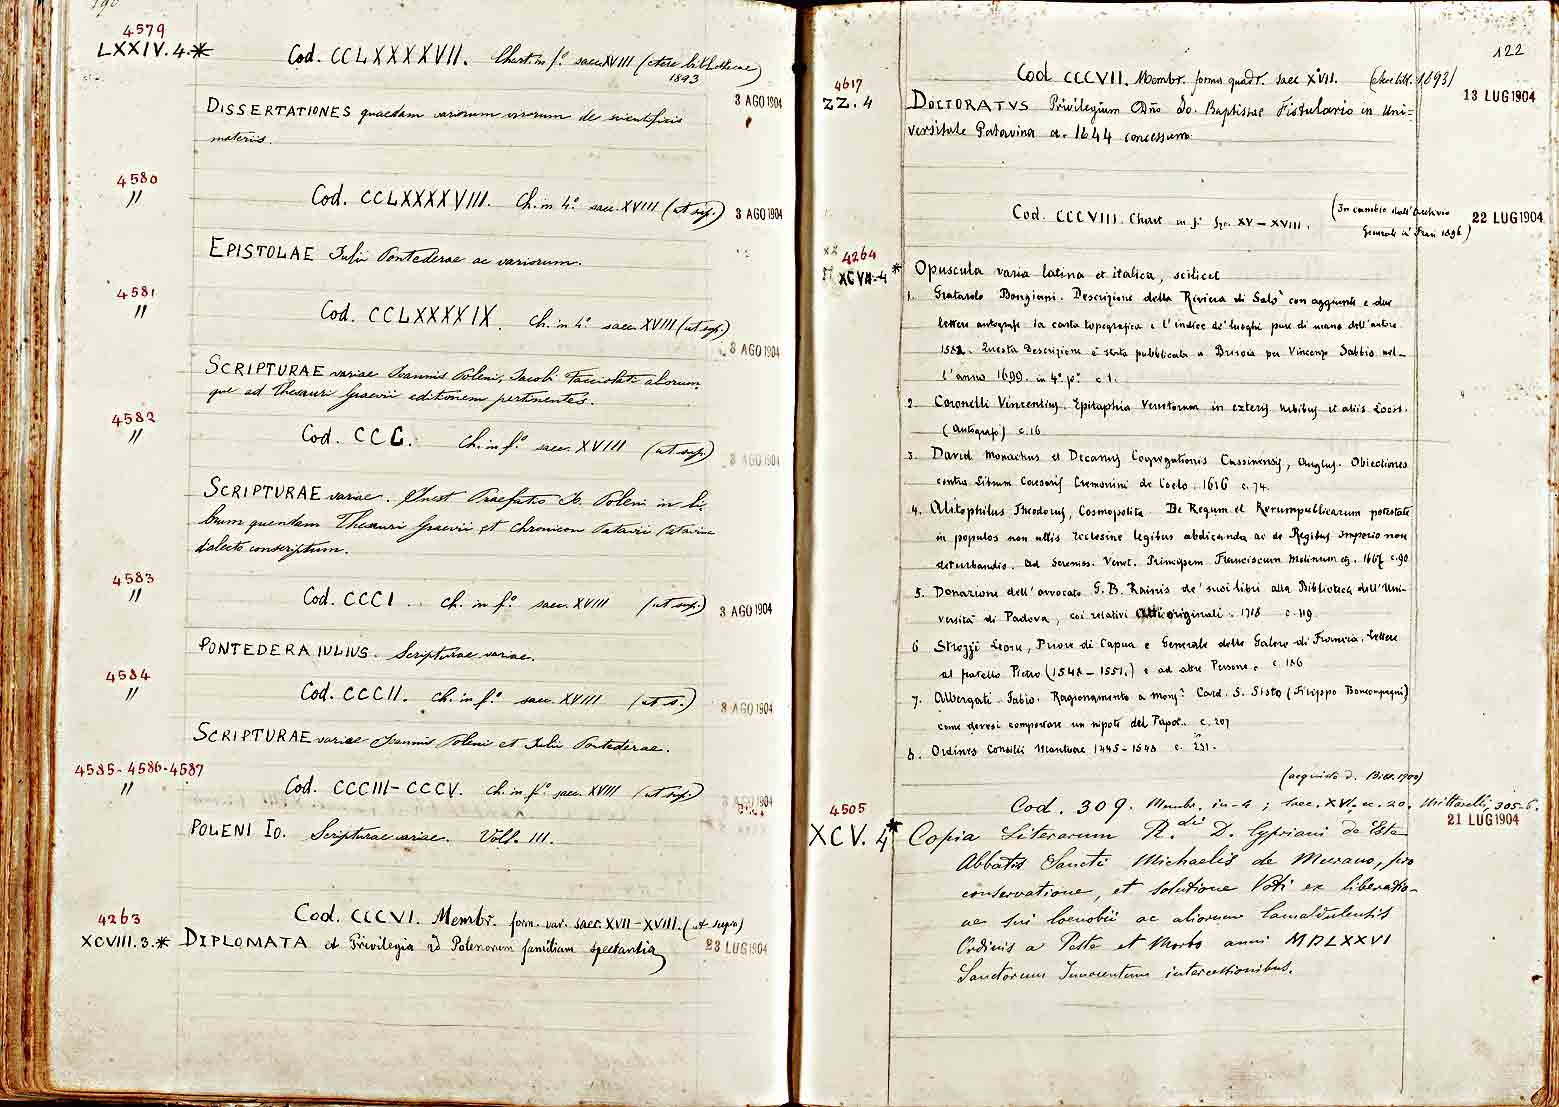 190
4579
LXXIV.4.*
Cod. CCLXXXXVII. Chart. in f.º saec. XVIII (
1893
3 AGO 1904
DISSERTATIONES quaedam variorum virorum de scientificis
materiis.
4580
"
Cod. CCLXXXXVIII. Ch. in 4.º saec. XVIII (ut sup.)
3 AGO 1904
EPISTOLAE Julii Pontederae ac variorum.
4581
"
Cod. CCLXXXXIX. Ch. in 4.º saec. XVIII (ut sup.)
3 AGO 1904
SCRIPTURAE variae Joannis Poleni, Jacobi Facciolati aliorum
que ad Thesauri Graevii editionem pertinentes.
4582
"
Cod. CCC. Ch. in f.º saec. XVIII (ut sup.)
3 AGO 1904
SCRIPTURAE variae. Inest Praefatio Jo. Poleni in li-
brum quendam Thesauri Graevii et Chronicon Patavii Patavina
dialecto conscriptum.
4583
"
Cod. CCCI.. Ch. in f.º saec. XVIII (ut sup.)
3 AGO 1904
PONTEDERA IULIUS. Scripturae variae.
4584
"
Cod. CCCII. Ch. in f.º saec. XVIII (ut s.)
3 AGO 1904
SCRIPTURAE variae Joannis Poleni et Julii Pontederae.
4585-4586-4587
"
Cod. CCCIII-CCCV. Ch. in f.º saec. XVIII (ut sup.)
3 AGO 1904
POLENI Io. Scripturae variae. Voll. III.
4263
XCVIII.3.*
Cod. CCCVI. Membr. form. var. saec. XVII-XVIII. (ut supra)
23 LUG 1904
DIPLOMATA et Privilegia ad Polenorum familiam spectantia
122
4617
ZZ. 4
Cod CCCVII. Membr. forma quadr. saec XVII. ( 1893)
13 LUG 1904
DOCTORATVS Privilegium Dño Jo. Baptistae Fistulario in Uni=
versitate Patavina a. 1644 concessum.
Cod. CCCVIII. Chart in f.º Sec. XV-XVIII.
(In cambio dall'Archivio
Generale ai Frari 1896)
22 LUG 1904
4264
XCVII.4 *
Opuscula varia latina et italica, scilicet
1. Grattarolo Bongiani. Descrizione della Riviera di Salò con aggiunte e due
lettere autografe. la carta topografica e l'indice de' luoghi pure di mano dell'autore.
Questa Descrizione è stata pubblicata a Brescia per Vincenzo Sabbio nel-
l'anno 1699. in 4º pº c 1.
2 Coronelli Vincentius. Epitaphia Venetorum in exteris urbibus et aliis Locis.
(Autografo) c.16
3. David Monachus et Decanus Congregationis Cassinensis, Anglus. Obiectiones
contra Librum Caesaris Cremonini de Coelo. 1616 c. 74.
4. Alitophilus Theodorus, Cosmopolita. De Regum et Rerumpublicarum potestate
in populos non ullis Ecclesiae legibus abdicanda ac de Regibus Imperio non
deturbandis. ad Sereniss. Venet. Principem Franciscum Molinum c. 90
5. Donazione dell'avvocato G.B. Rainis de' suoi libri alla Biblioteca dell'Uni-
versità di Padova, coi relativi Atti originali. 1718 c. 119.
6 Strozzi Leone, Priore di Capua e Generale delle Galere di Francia. Lettere
al fratello Pietro (1548-1551.) e ad altre Persone. c. 186
7. Albergati Fabio. Ragionamento a mons.r Card. S. Sisto (Filippo Boncompagni)
come devesi comportare un nipote del Papa. c. 207
8. Ordines Consilii Mantuae 1445-1548 c. 231.
(acquisto d. Bibl. 1900)
4505
XCV. 4*
Cod. 309. Membr. in-4; Sec. XVI, cc. 20. Mittarelli, 305-6.
21 LUG 1904
Copia Literarum R.di D. Cypriani da Este
Abbatis Sancti Michaelis de Murano, pro
conservatione, et solutione Voti ex liberatio-
ne sui Coenobii ac aliorum Camaldulensis
Ordinis a Peste et Morbo anni MDLXXVI
Sanctorum Innocentum intercessionibus.